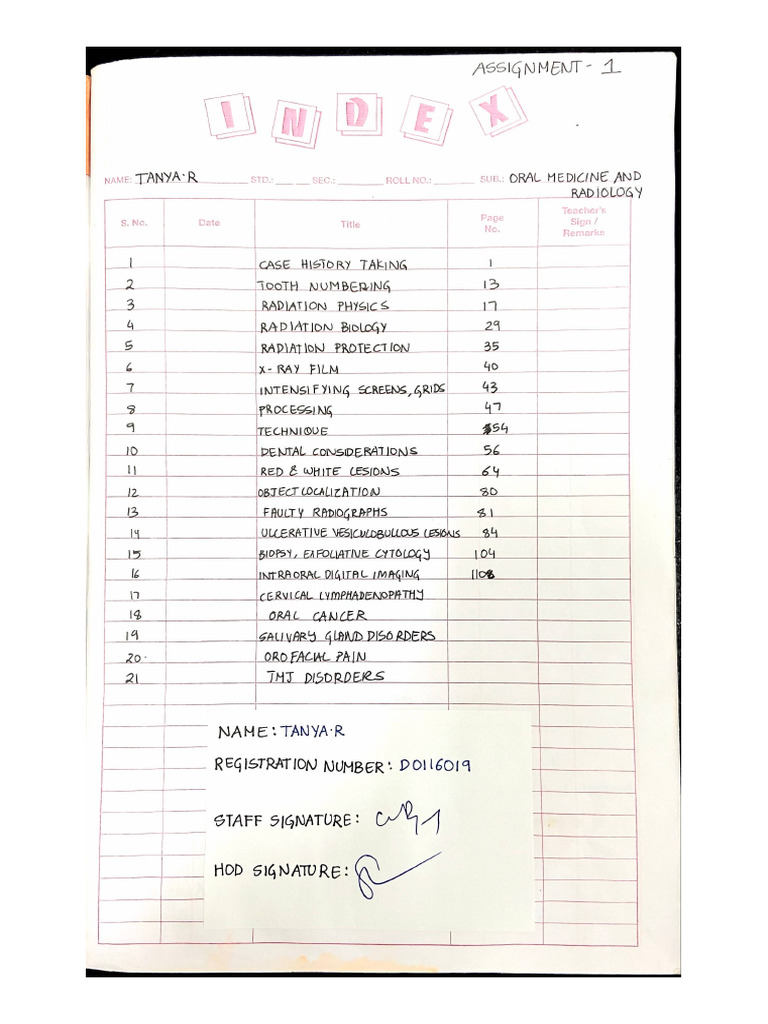 ASSIGNMENT - 1
INDEX
NAME: TANYA·R STD.: SEC.: ROLL NO.: SUB.: ORAL MEDICINE AND
RADIOLOGY
S. No. Date Title Page No. Teacher's Sign / Remarks
1 CASE HISTORY TAKING 1
2 TOOTH NUMBERING 13
3 RADIATION PHYSICS 17
4 RADIATION BIOLOGY 29
5 RADIATION PROTECTION 35
6 X-RAY FILM 40
7 INTENSIFYING SCREENS, GRIDS 43
8 PROCESSING 47
9 TECHNIQUE 54
10 DENTAL CONSIDERATIONS 56
11 RED & WHITE LESIONS 64
12 OBJECT LOCALIZATION 80
13 FAULTY RADIOGRAPHS 81
14 ULCERATIVE VESICULOBULLOUS LESIONS 84
15 BIOPSY, EXFOLIATIVE CYTOLOGY 104
16 INTRAORAL DIGITAL IMAGING 1108
17 CERVICAL LYMPHADENOPATHY
18 ORAL CANCER
19 SALIVARY GLAND DISORDERS
20· OROFACIAL PAIN
21 TMJ DISORDERS
NAME: TANYA·R
REGISTRATION NUMBER: D0116019
STAFF SIGNATURE:
HOD SIGNATURE: